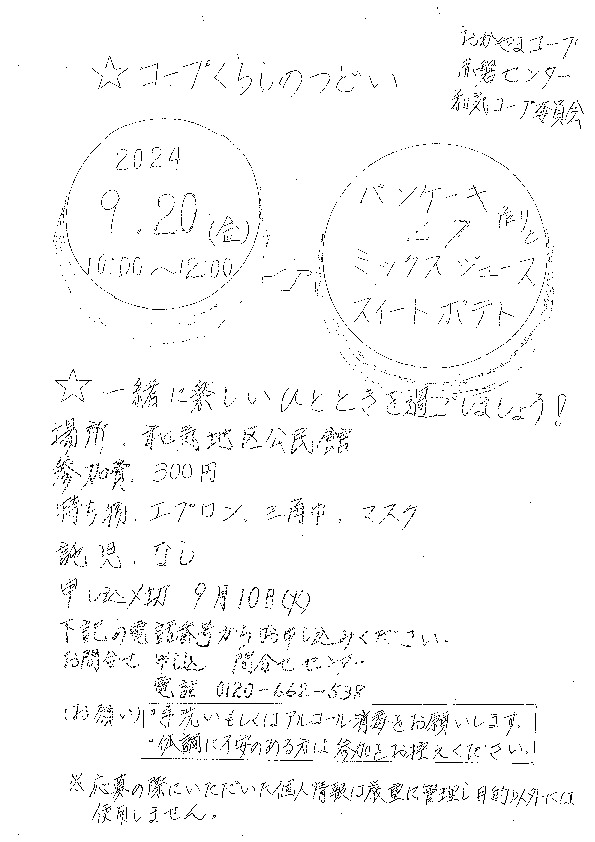 おかやまコープ
赤磐センター
和気コープ委員会
☆コープくらしのつどい
2024
9.20(金)
10:00〜12:00
パンケーキ
作りと
ミックスジュース
スイートポテト
☆一緒に楽しいひとときを過ごしましょう!
場所、和気地区公民館
参加費、300円
持ち物、エプロン、三角巾、マスク
託児、なし
申し込〆切 9月10日(火)
下記の電話番号からお申し込みください。
お問合せ 申込 問合せセンター
電話 0120-662-538
(お願い)・手洗いもしくはアルコール消毒をお願いします。
・体調に不安のある方は参加をお控えください。
※応募の際にいただいた個人情報は厳重に管理し目的以外には
使用しません。